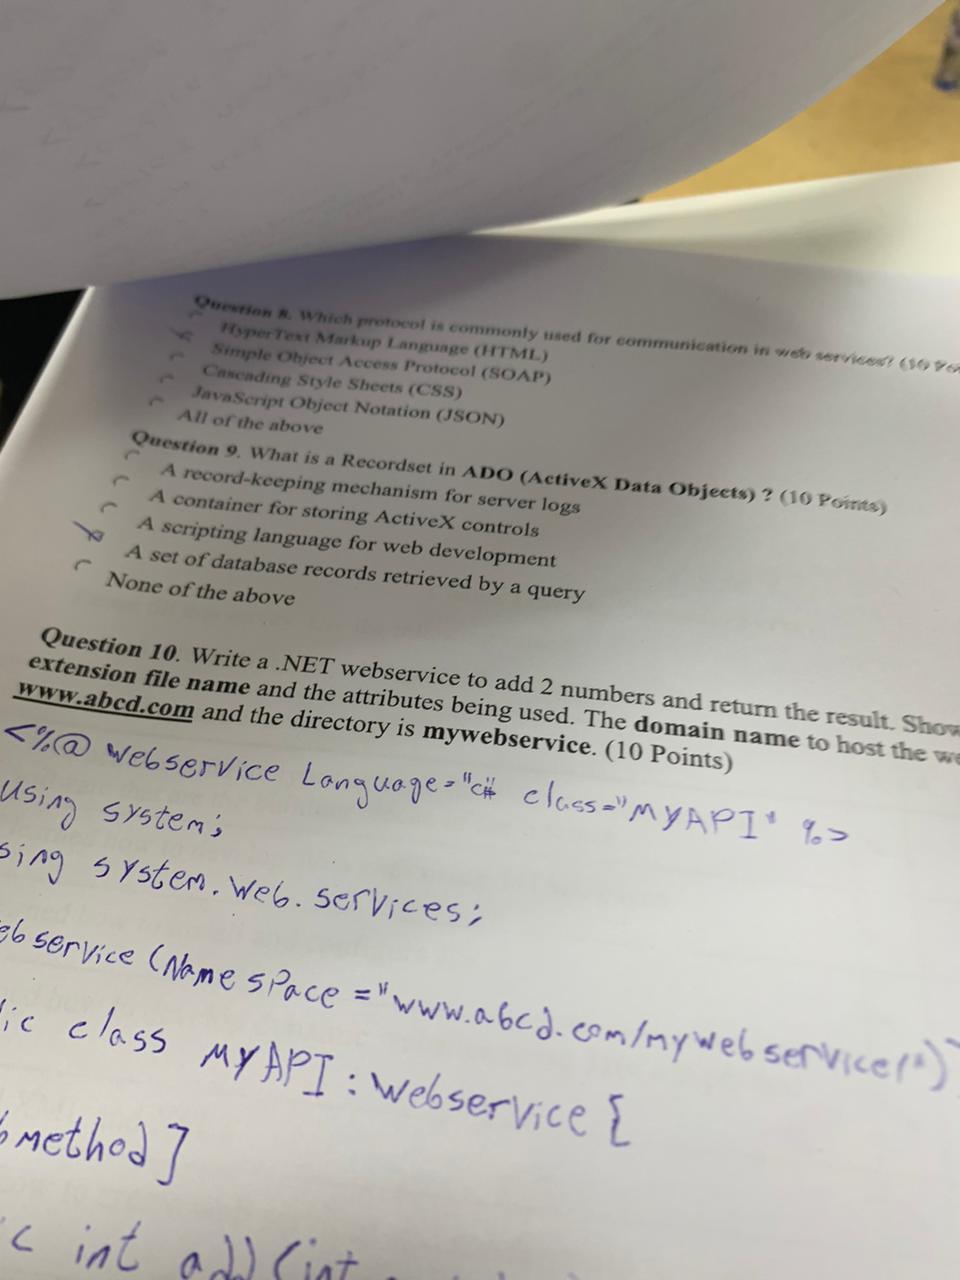 Question 8. Which protocol is commonly used for communication in web services? (10
HyperText Markup Language (HTML)
Simple Object Access Protocol (SOAP)
Cascading Style Sheets (CSS)
JavaScript Object Notation (JSON)
All of the above
Question 9. What is a Recordset in ADO (ActiveX Data Objects) ? (10 Points)
A record-keeping mechanism for server logs
A container for storing ActiveX controls
A scripting language for web development
A set of database records retrieved by a query
None of the above
Question 10. Write a .NET webservice to add 2 numbers and return the result. Show
extension file name and the attributes being used. The domain name to host the we
www.abcd.com and the directory is mywebservice. (10 Points)
<%@ webservice Language="c# class="MYAPI" %>
using system;
sing system.web.services;
ebservice (Namespace ="www.abcd.com/mywebservice/")
lic class MYAPI : webservice {
bmethod]
c int add(int